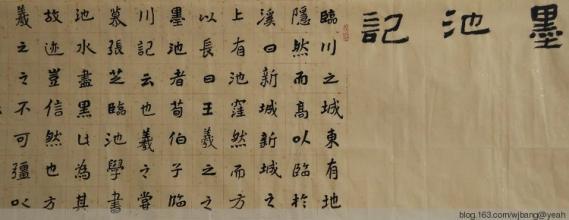 墨池記
臨川之城東有地
隱然而高以臨於
溪曰新城新城之
上有池窪然而方
以長曰王羲之之
墨池者荀伯子臨
川記云也羲之嘗
慕張芝臨池學書
池水盡黑此為其
故迹豈信然也方
羲之之不可彊以
blog.163.com/wjbang@yeah